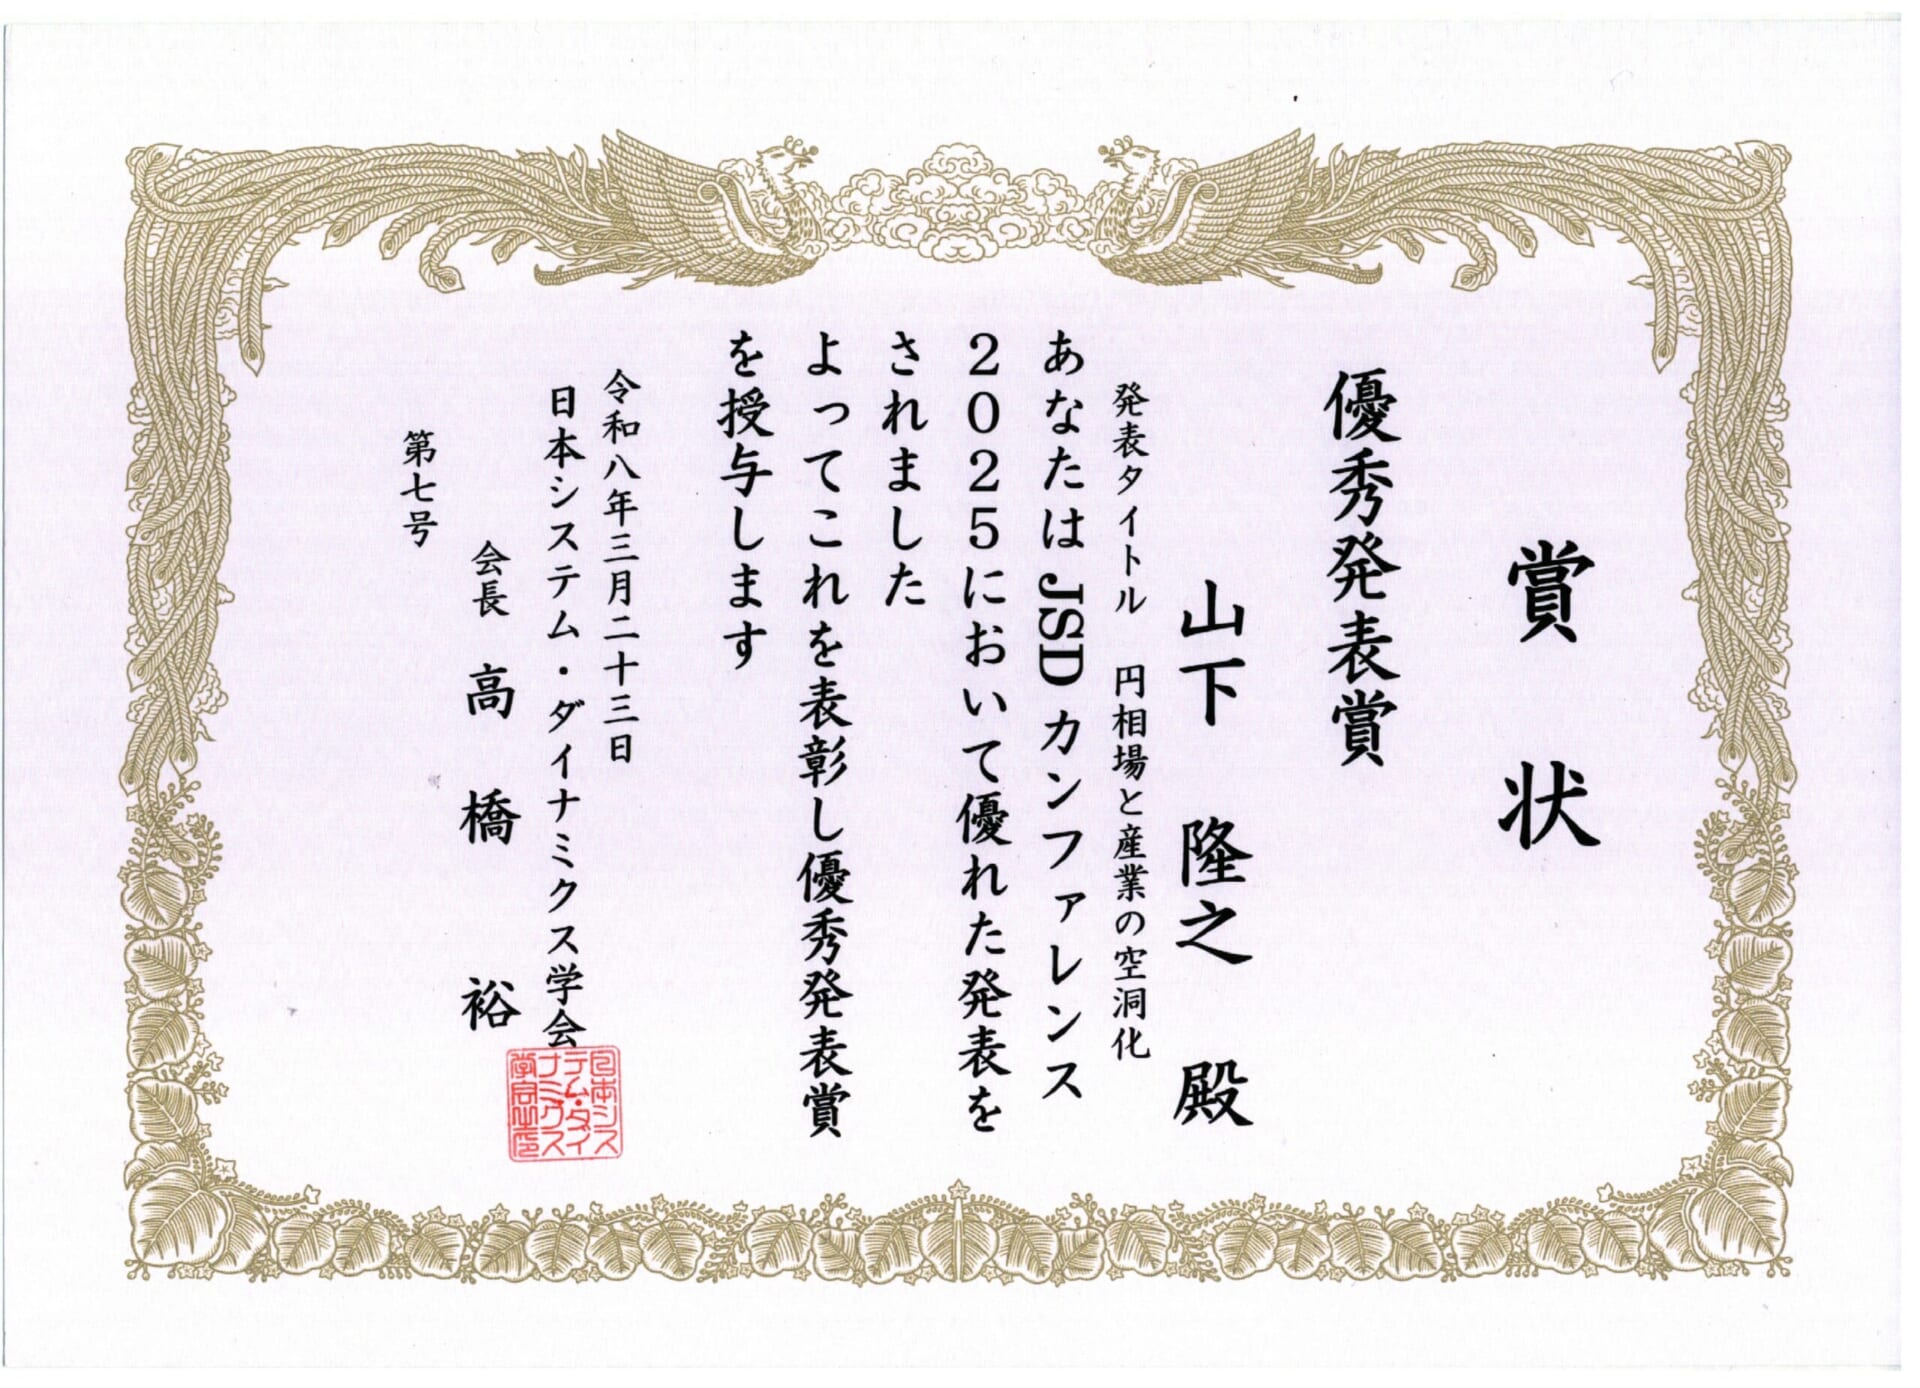 賞状
優秀発表賞
山下 隆之 殿
発表タイトル 円相場と産業の空洞化
あなたは JSD カンファレンス
2025において優れた発表を
されました
よってこれを表彰し優秀発表賞
を授与します
令和八年三月二十三日
日本システム・ダイナミクス学会
会長 高橋 裕
第七号
日本シス
テム・ダイ
ナミクス
学会之印